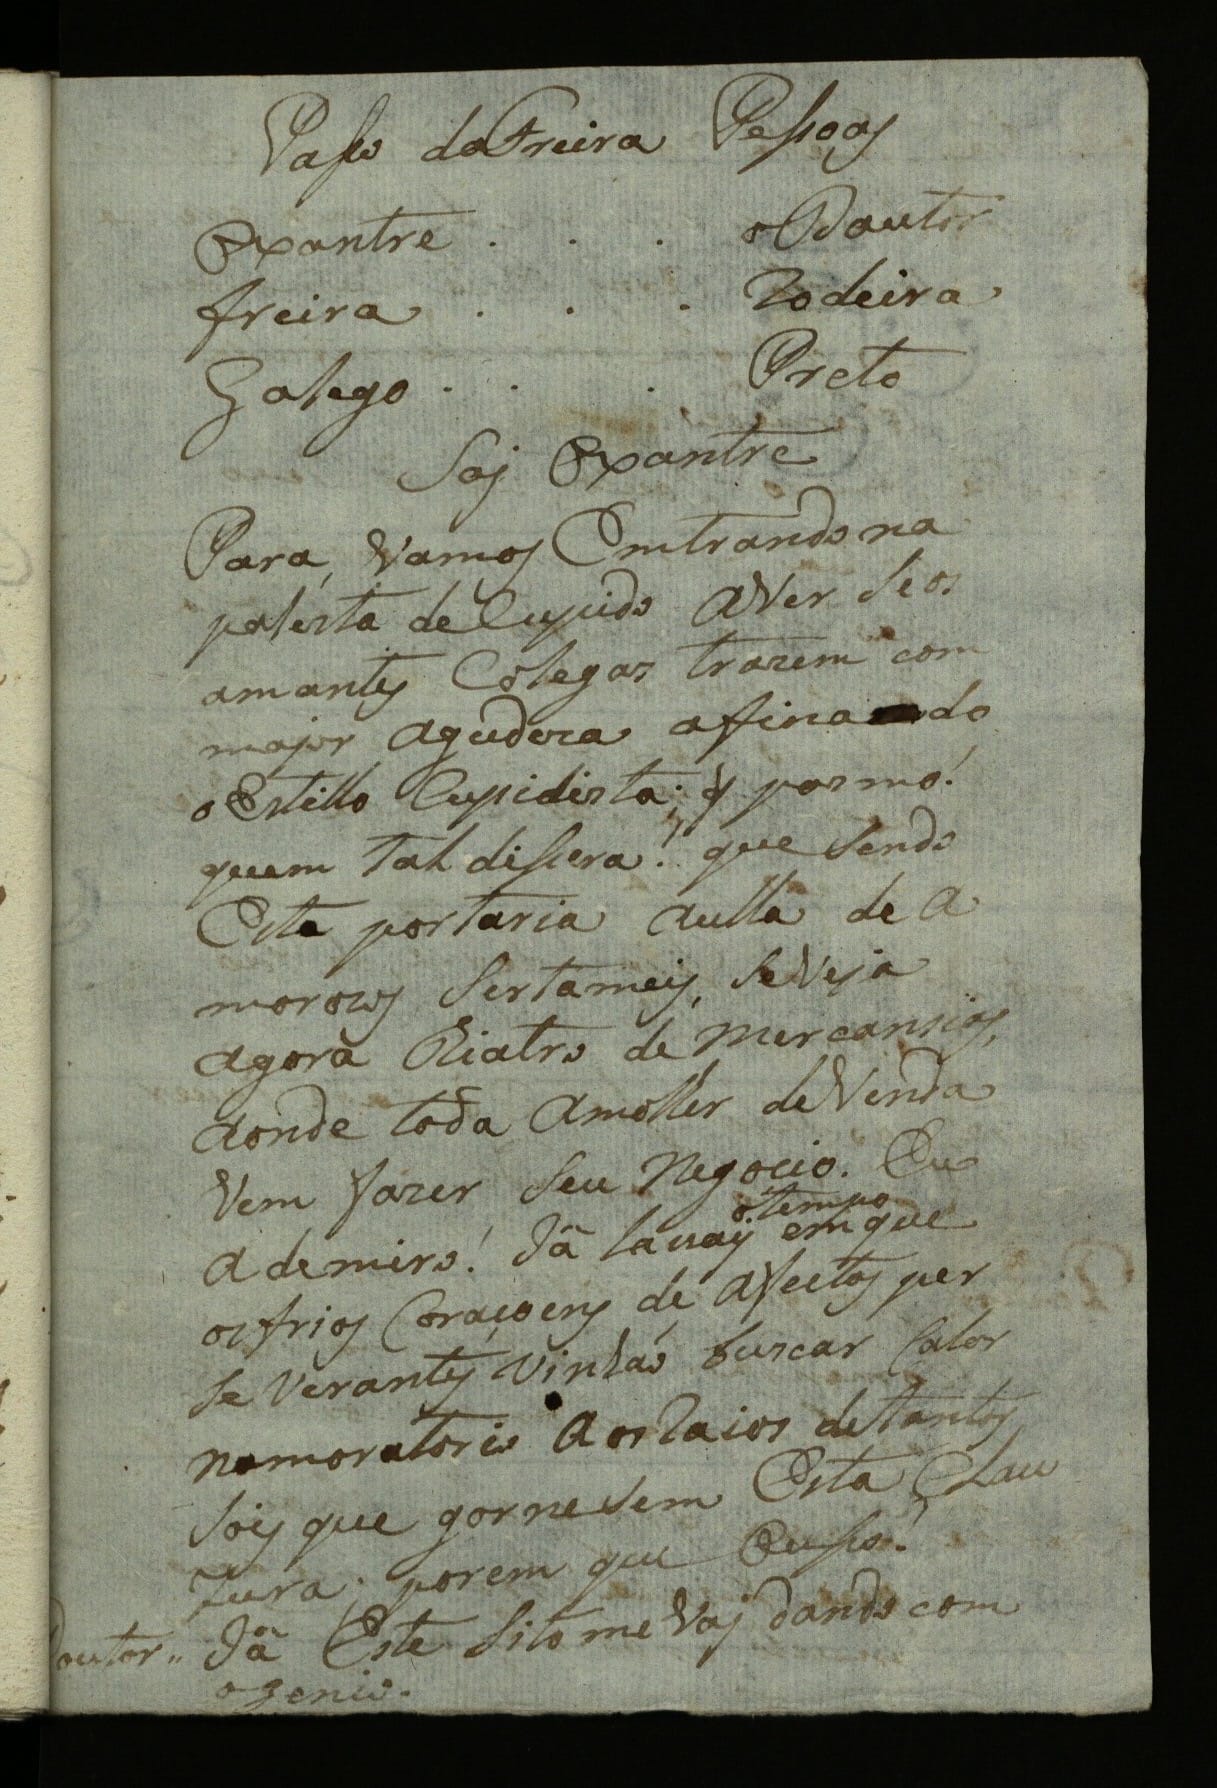 Passo da Freira Pessoas
Oxantre . . . o Dautor
freira . . . Rodeira
Galego . . . Preto
Saj Oxantre
Para, Vamos Emtrando na
palesta de Cupido a Ver se os
amantes Colegas trazem com
major agudeza afinado
o Estillo Cupidista; q pasmo!
quem tal dissera! que sendo
Esta portaria aulla de a
morozos sertameis, se Veja
agora tiatro de mercansias,
aonde toda a molher de Venda
Vem fazer seu Negocio. Eu
ademiro! Já lá vay o tempo em que
os frios Coraçoens de afectos per
se Verantes, vinhão buscar Calor
namoratorio aos Raios de tantos
sois que gornesem Esta Clau
zura; porem que Ousso!
Doutor,, Já Este sito me Vaj dando com
o genio.